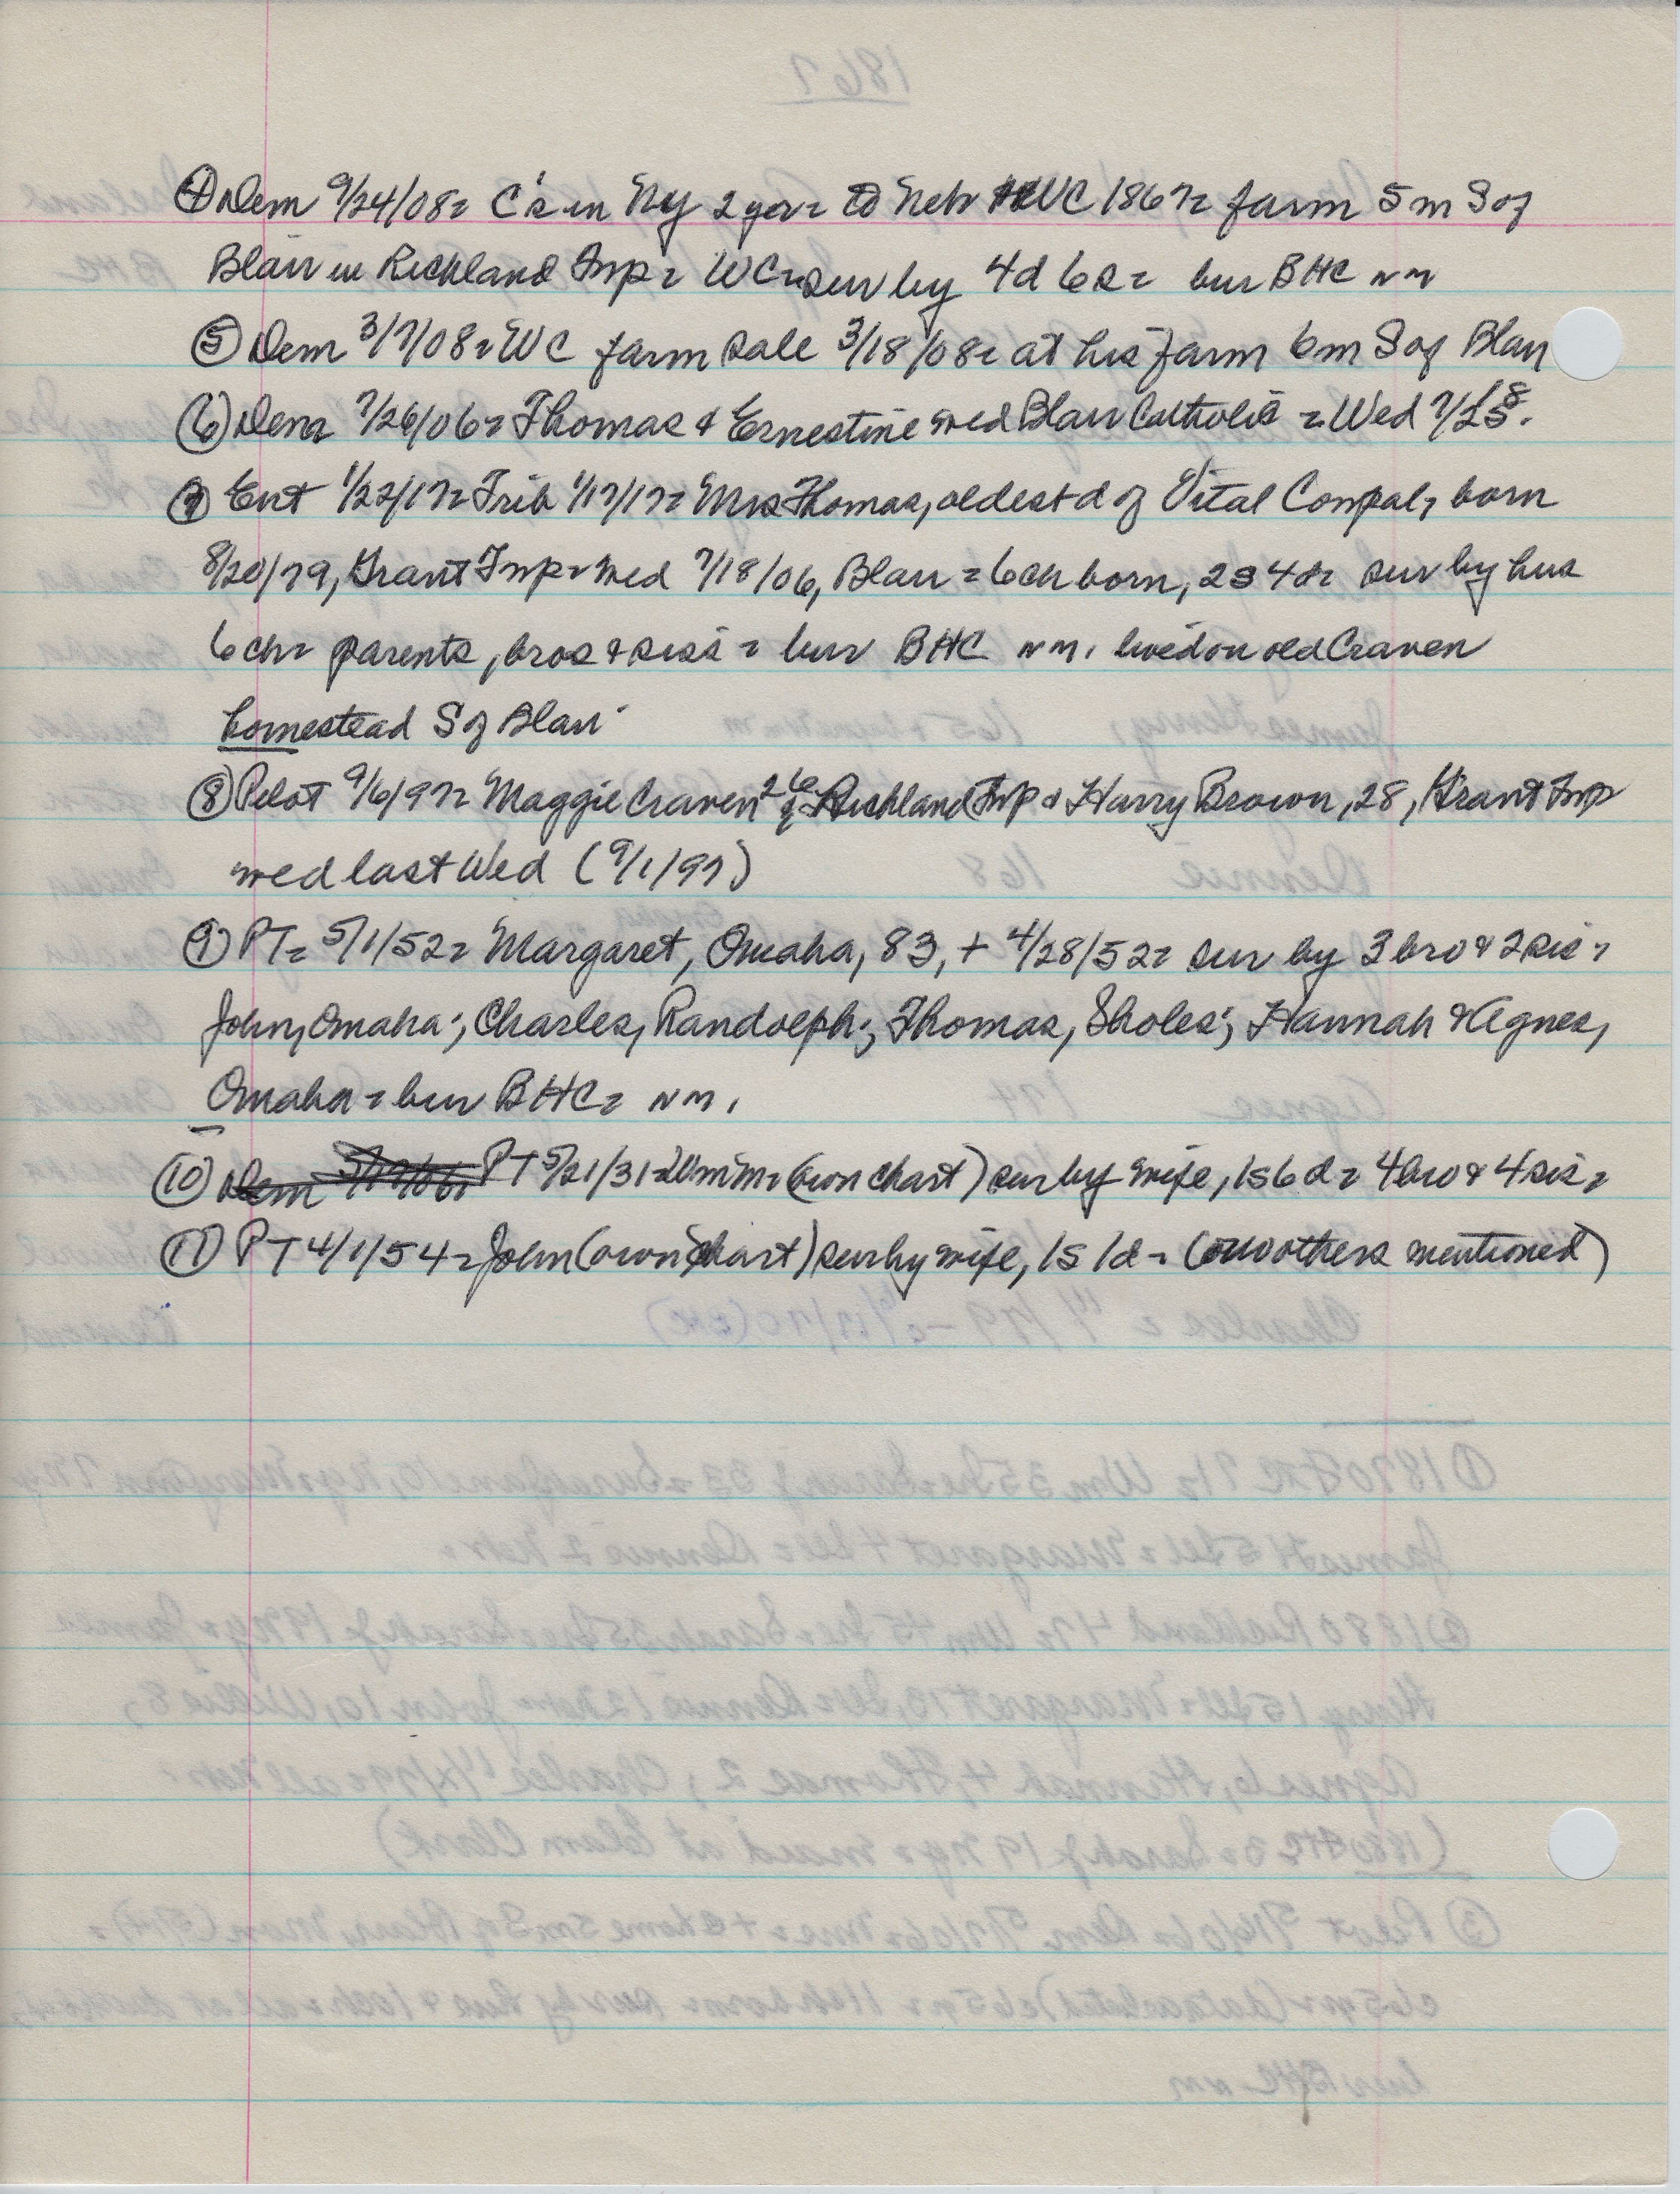 ④ Dem 9/24/08= C's in NY 2 yrs= to Nebr WC 1867= farm 5 m S of
Blair in Richland Twp= WC= sur by 4d 6s= bur BHC nm
⑤ Dem 3/7/08= WC farm sale 3/18/08= at his farm 6m S of Blair
⑥ Dem 7/26/06= Thomas & Ernestine wed Blair Catholic = Wed 7/18.
⑦ Ent 1/22/17= Trib 1/17/17= Mrs Thomas, oldest d of Vital Compal, born
8/20/79, Grant Twp= wed 7/18/06, Blair = 6 ch born, 2s 4d= sur by hus
6 ch= parents, bros & siss = bur BHC nm. lived on old Craven
homestead S of Blair
⑧ Pilot 9/6/97= Maggie Craven 26 of Richland Twp & Harry Brown, 28, Grant Twp
wed last Wed (9/1/97)
⑨ PT= 5/1/52= Margaret, Omaha, 83, + 4/28/52= sur by 3 bro & 2 sis=
John, Omaha; Charles, Randolph; Thomas, Sholes; Hannah & Agnes,
Omaha= bur BHC= nm.
⑩ PT 5/21/31= Wm M= (own chart) sur by wife, 1s 6d= 4 bro & 4 sis=
⑪ PT 4/1/54= John (own chart) sur by wife, 1s 1d= (no others mentioned)